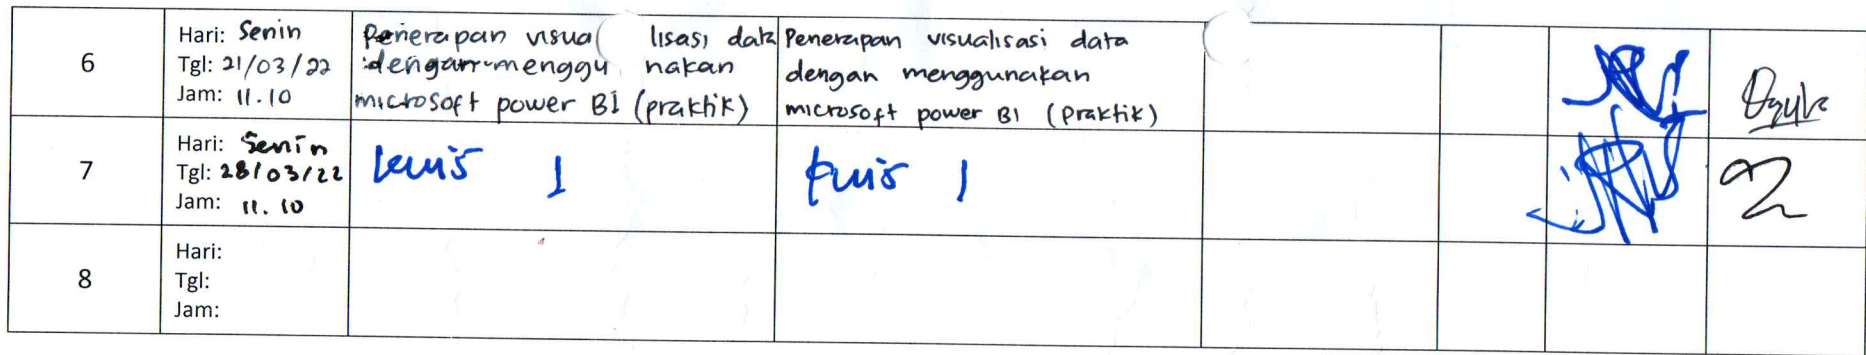 6
Hari: Senin
Tgl: 21/03/22
Jam: 11.10
Penerapan visualisasi data
dengan menggunakan
microsoft power BI (praktik)
Penerapan visualisasi data
dengan menggunakan
microsoft power BI (praktik)
7
Hari: Senin
Tgl: 28/03/22
Jam: 11.10
kuis 1
kuis 1
8
Hari:
Tgl:
Jam: